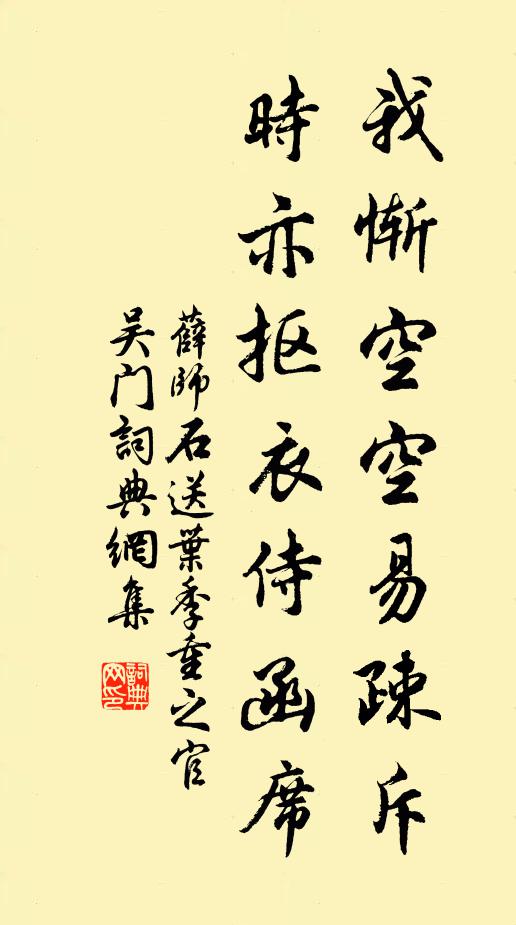 我慚空空易疎斥
時亦抠衣侍函席
薛師石送葉季重之官
吴门詞典網集
詞典
网印